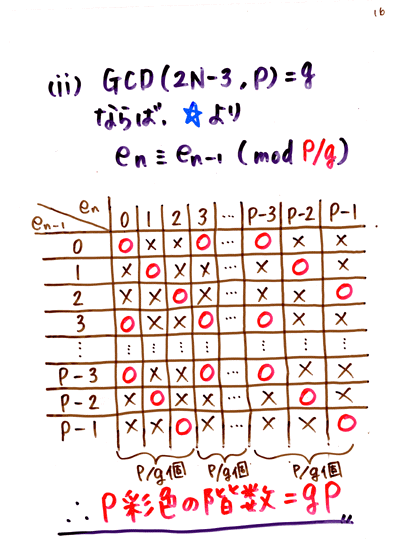 16
(ii) GCD(2N-3, P) = g
ならば、☆より
en ≡ en-1 (mod P/g)
en-1 en 0 1 2 3 … P-3 P-2 P-1
0 O × × O … O × ×
1 × O × × … × O ×
2 × × O × … × × O
3 O × × O … O × ×
⋮ ⋮ ⋮ ⋮ ⋮ ⋮ ⋮ ⋮
P-3 O × × O … O × ×
P-2 × O × × … × O ×
P-1 × × O × … × × O
P/g個 P/g個 P/g個
∴ P彩色の階数 = gP 〃